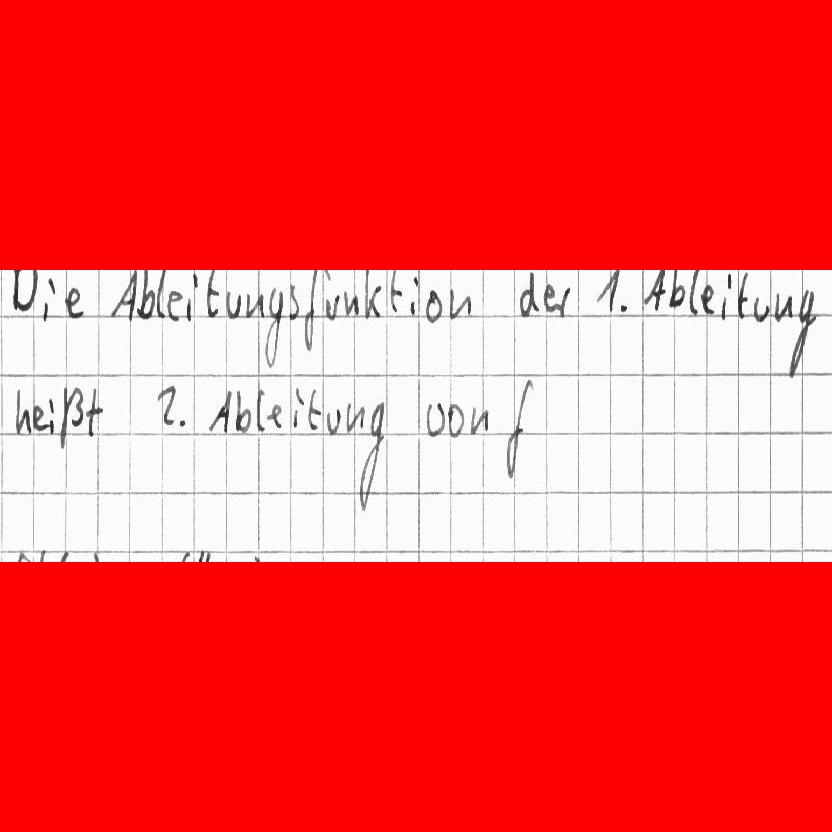 Die Ableitungsfunktion der 1. Ableitung
heißt 2. Ableitung von f